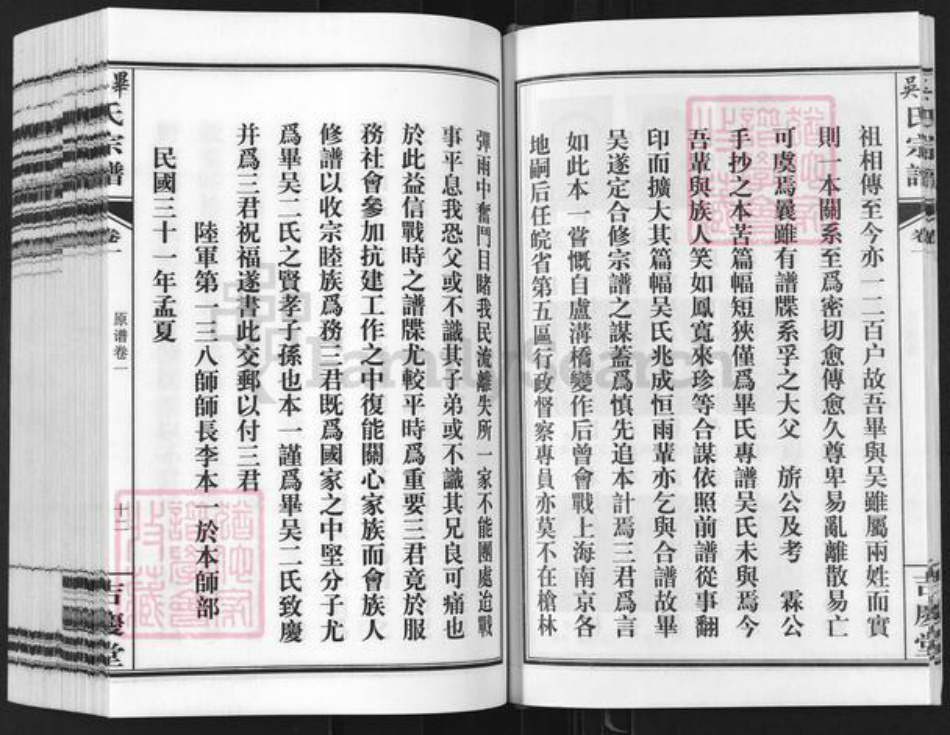 吳氏宗譜
吉慶堂
祖相傳至今亦一二百户故吾畢與吳雖屬兩姓而實
則一本關系至爲密切愈傳愈久尊卑易亂離散易亡
可虞焉曩雖有譜牒系孚之大父 旂公及考 霖公
手抄之本苦篇幅短狹僅爲畢氏專譜吳氏未與焉今
吾輩與族人笑如鳳寬來珍等合謀依照前譜從事翻
印而擴大其篇幅吳氏兆成恒雨輩亦乞與合譜故畢
吳遂定合修宗譜之謀蓋爲慎先追本計焉三君爲言
如此本一嘗慨自盧溝橋變作后曾會戰上海南京各
地嗣后任皖省第五區行政督察專員亦莫不在槍林
彈雨中奮鬥目睹我民流離失所一家不能團處迨戰
事平息我恐父或不識其子弟或不識其兄良可痛也
於此益信戰時之譜牒尤較平時爲重要三君竟於服
務社會參加抗建工作之中復能關心家族而會族人
修譜以收宗睦族爲務三君既爲國家之中堅分子尤
爲畢吳二氏之賢孝子孫也本一謹爲畢吳二氏致慶
并爲三君祝福遂書此交郵以付三君
陸軍第一三八師師長李本一於本師部
民國三十一年孟夏
畢氏宗譜
卷一
原谱卷一
十二
吉慶堂
FamilySearch